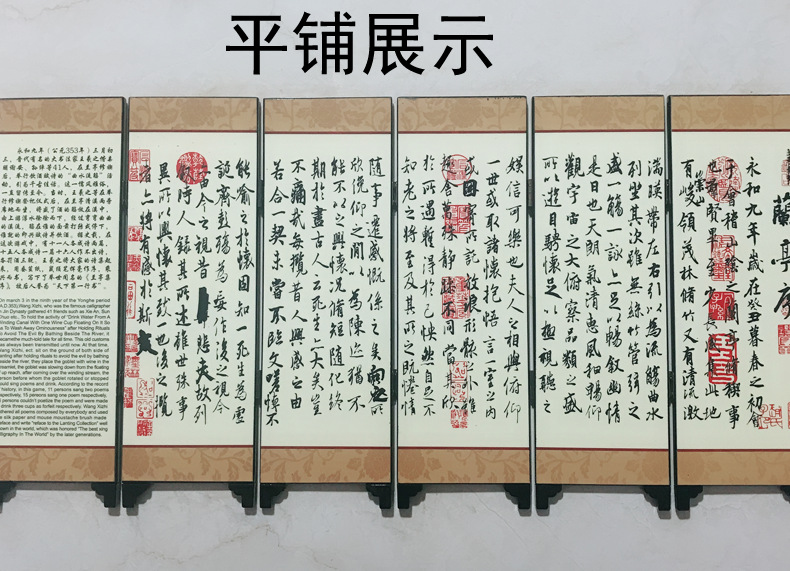 平铺展示
蘭亭序
永和九年歲在癸丑暮春之初會
于會稽山陰之蘭亭脩禊事
也群賢畢至少長咸集此地
有崇山峻領茂林脩竹又有清流激
湍暎帶左右引以為流觴曲水
列坐其次雖無絲竹管弦之
盛一觴一詠亦足以暢敘幽情
是日也天朗氣清惠風和暢仰
觀宇宙之大俯察品類之盛
所以遊目騁懷足以極視聽之
娛信可樂也夫人之相與俯仰
一世或取諸懷抱悟言一室之內
或因寄所託放浪形骸之外雖
趣舍萬殊靜躁不同當其欣
於所遇暫得於己怏然自足不
知老之將至及其所之既惓情
隨事遷感慨係之矣向之所
欣俛仰之間以為陳迹猶不
能不以之興懷況脩短隨化終
期於盡古人云死生亦大矣豈
不痛哉每攬昔人興感之由
若合一契未嘗不臨文嗟悼不
能喻之於懷固知一死生為虛
誕齊彭殤為妄作後之視今
亦由今之視昔悲夫故列
敘時人錄其所述雖世殊事
異所以興懷其致一也後之攬
者亦將有感於斯文
永和九年（公元353年）三月初
三，晋代有名的大书法家王羲之偕亲
朋谢安、孙绰等41人，在
On march 3 in the ninth year of the Yonghe period
A.D.353),Wang Xizhi, who was the famous calligrapher
Jin Dynasty gathered 41 friends such as Xie An, Sun
Chuo etc., To hold the activity of "Drink Water From A
Winding Canal With One Wine Cup Floating On It So
To Wash Away Ominousness" after Holding Rituals
To Avoid The Evil By Bathing Beside The River, it
became the much-told tale for all time. This old customs
was always been transmitted until now. At that time,
Wang Xizhi, ect. sit on the ground of both side of
after holding rituals to avoid the evil by bathing
side the river, they place the goblet with wine in the
stream, the goblet was slowing down from the floating
up reach, after coming over the winding stream, the
person before whom the goblet rotates or stopped
could sing poems and drink. According to the record
history, in this game, 11 persons sang two poems
respectively, 15 persons sang one poem respectively,
persons couldn't settle the poem and were made
drink three cups as forfeit respectively. Wang Xizhi
gathered all poems composed by everybody and used
silk paper and mouse moustache brush made
preface and write "reface to the Lanting Collection" well
known in the world, which was honored "The best xing
calligraphy In The World" by the later generations.